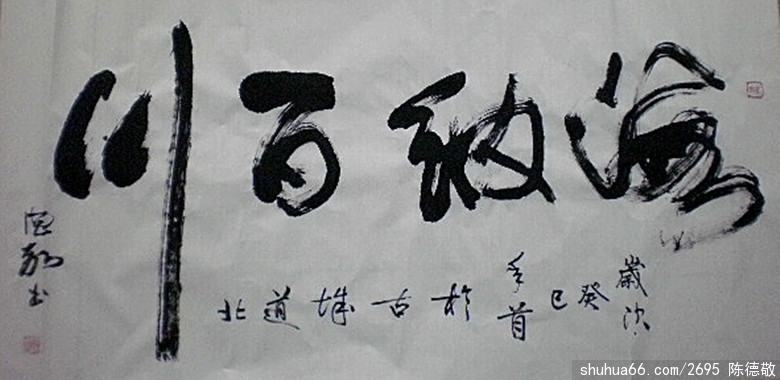 海納百川
歲次癸巳年首於古城道北
德敬书
shuhua66.com/2695 陈德敬